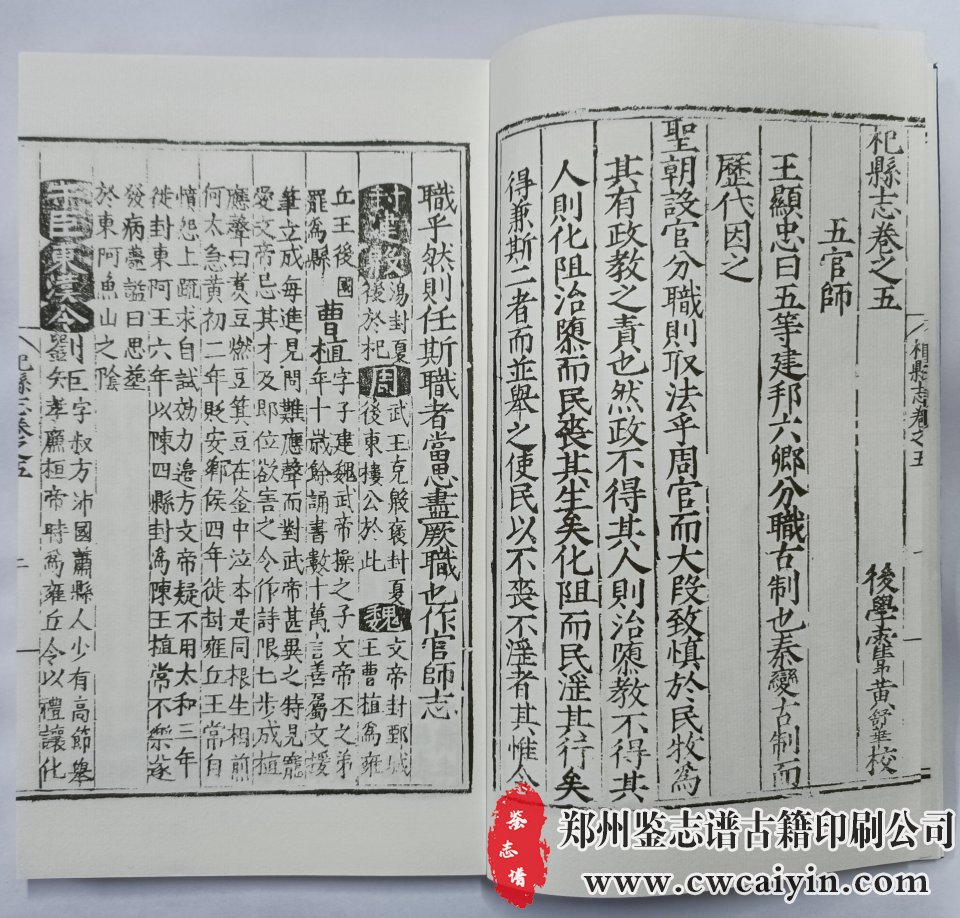 杞縣志卷之五
後學霑化黃舒華校
五官師
王顯忠曰五等建邦六卿分職古制也秦變古制而
歷代因之
聖朝設官分職則取法乎周官而大段致慎於民牧為
其有政教之責也然政不得其人則治隳教不得其
人則化阻治隳而民喪其生矣化阻而民淫其行矣
得兼斯二者而並舉之使民以不喪不淫者其惟令
杞縣志卷之五
一
職乎然則任斯職者當思盡厥職也作官師志
湯封夏後於杞 周 武王克殷褒封夏後東樓公於此 魏 文帝封鄄城王曹植為雍
丘王後國罷為縣 曹植 字子建魏武帝操之子文帝丕之弟年十歲餘誦書數十萬言善屬文援
筆立成每進見問難應聲而對武帝甚異之特見寵
愛文帝忌其才及即位欲害之令作詩限七步成植
應聲曰煮豆燃豆萁豆在釜中泣本是同根生相煎
何太急黃初二年貶安鄉侯四年徙封雍丘王常自
憤怨上疏求自試効力邊方文帝疑不用太和三年
徙封東阿王六年以陳四縣封為陳王植常不樂遂
發病薨謚曰思塟
於東阿魚山之陰
東漢令 劉矩 字叔方沛國蕭縣人少有高節舉孝廉桓帝時為雍丘令以禮讓化
杞縣志卷之五
鉴志谱
郑州鉴志谱古籍印刷公司
www.cwcaiyin.com